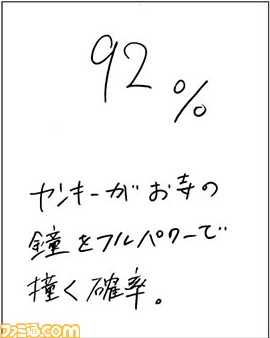 92%
ヤンキーがお寺の
鐘をフルパワーで
撞く確率。
ファミ通.com